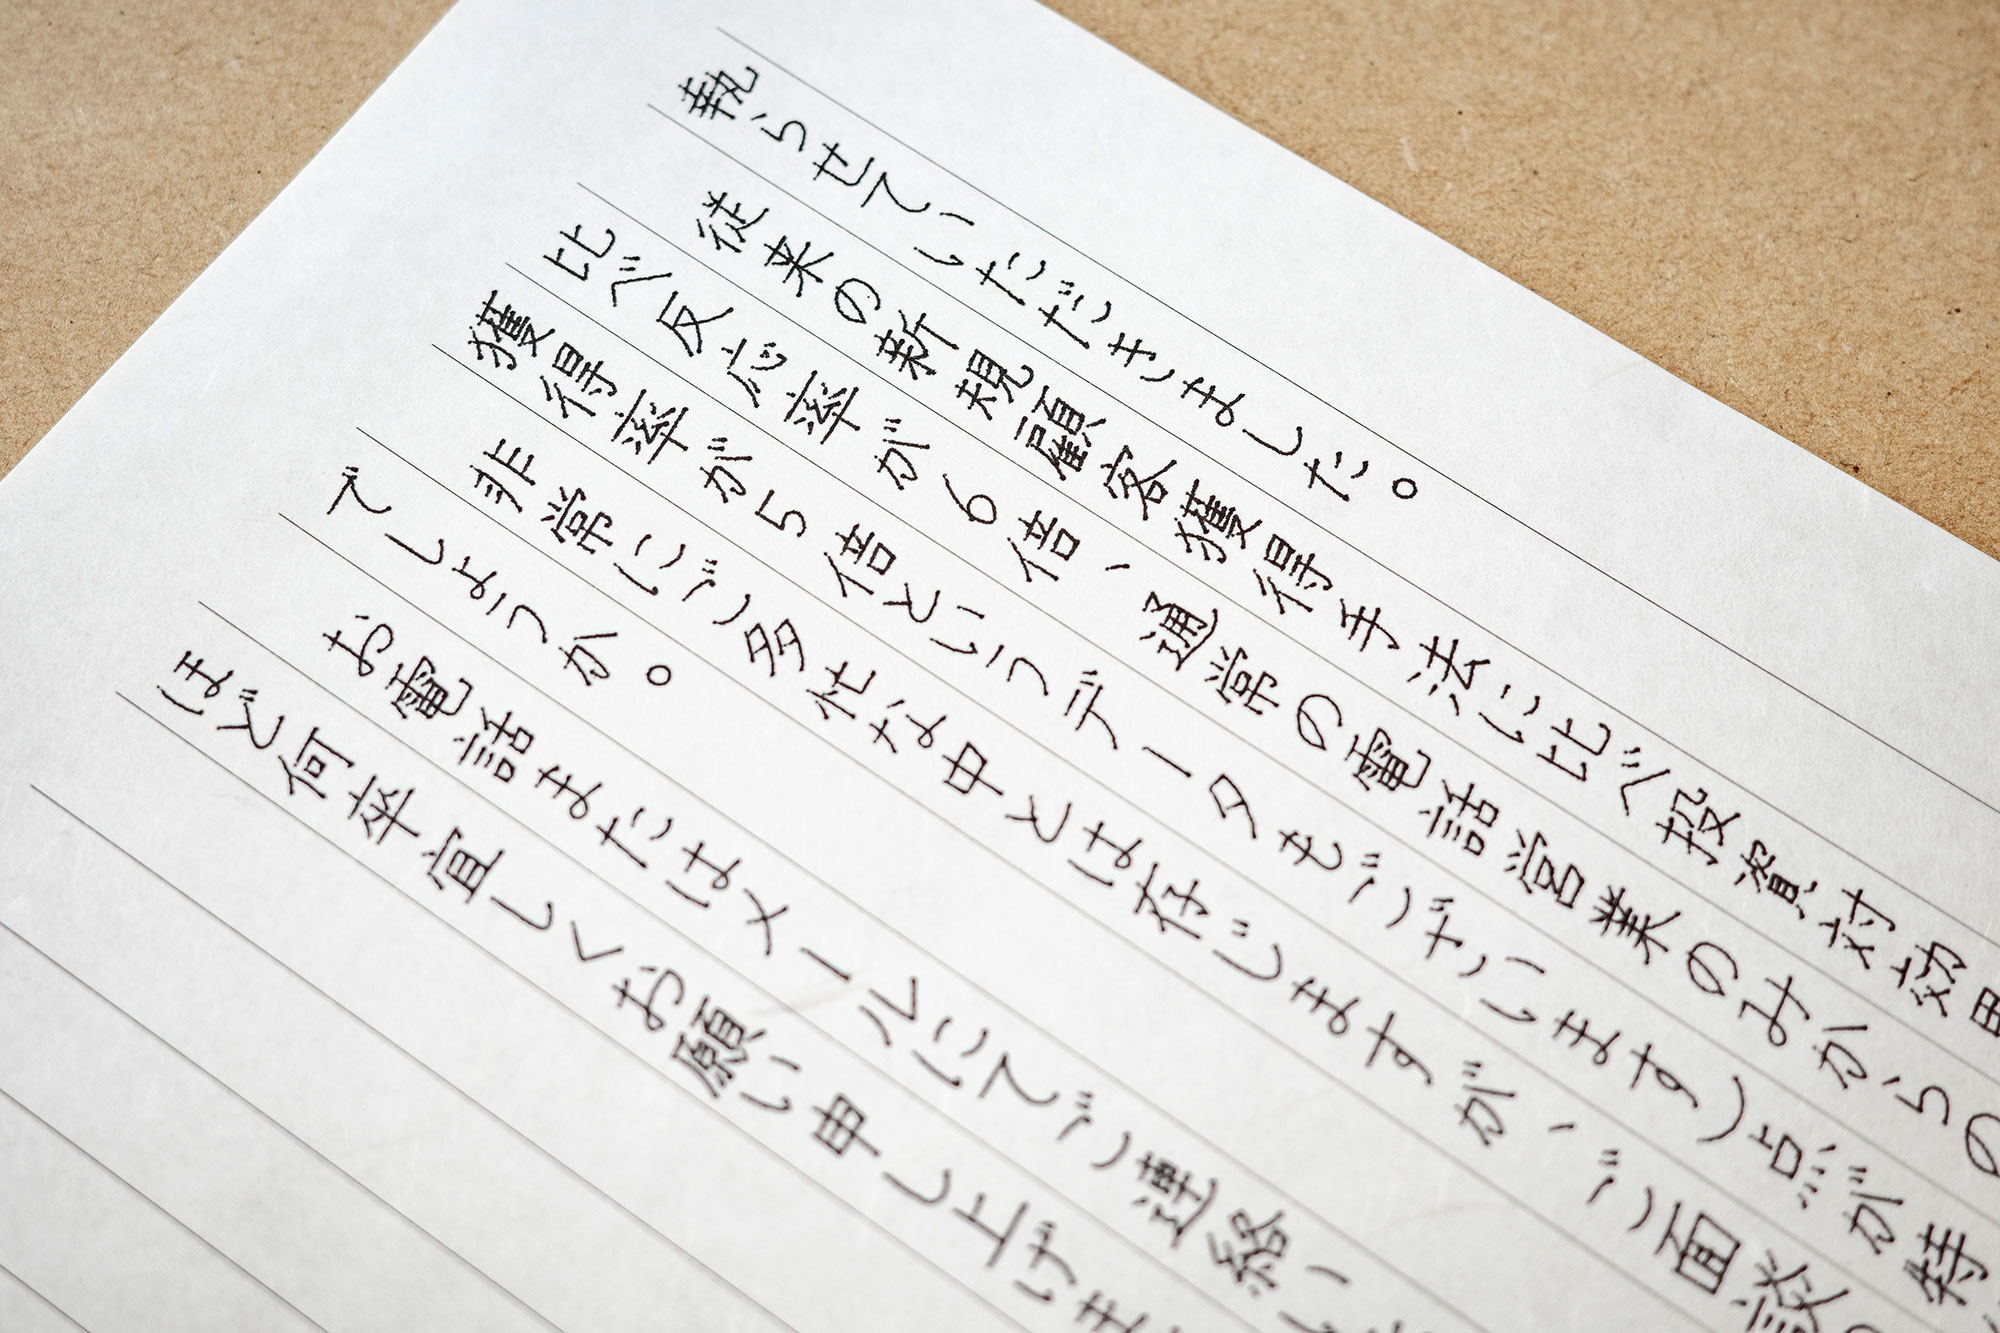 執らせていいただきました。
従来の新規顧客獲得手法に比べ投資対効果
比べ反応率が6倍、通常の電話営業のみからの
獲得率が5倍というデータもございます)点が特
非常にご多忙な中とは存じますが、ご面談の
でしょうか。
お電話またはメールにてご連絡い
ほど何卒宜しくお願い申し上げま